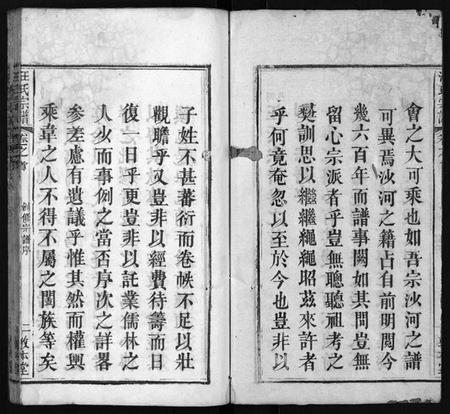 會之大可乘也如吾宗沙河之
可異焉沙河之籍占自前明閱今
幾六百年而譜事闕如其間豈無
留心宗派者乎豈無聽聽祖考之
彝訓思以繼繼繩繩昭茲來許者
乎何竟奄忽以至於今也豈非以
子姓不甚蕃衍而卷帙不足以壯
觀瞻乎又豈非以經費待籌而日
復一日乎更豈非以託業儒林之
人少而事例之當否序次之詳畧
參差慮有遺議乎惟其然而權輿
乘韋之人不得不屬之閩族等矣
汪氏宗譜
卷之首
創修宗譜序
二
敦本堂